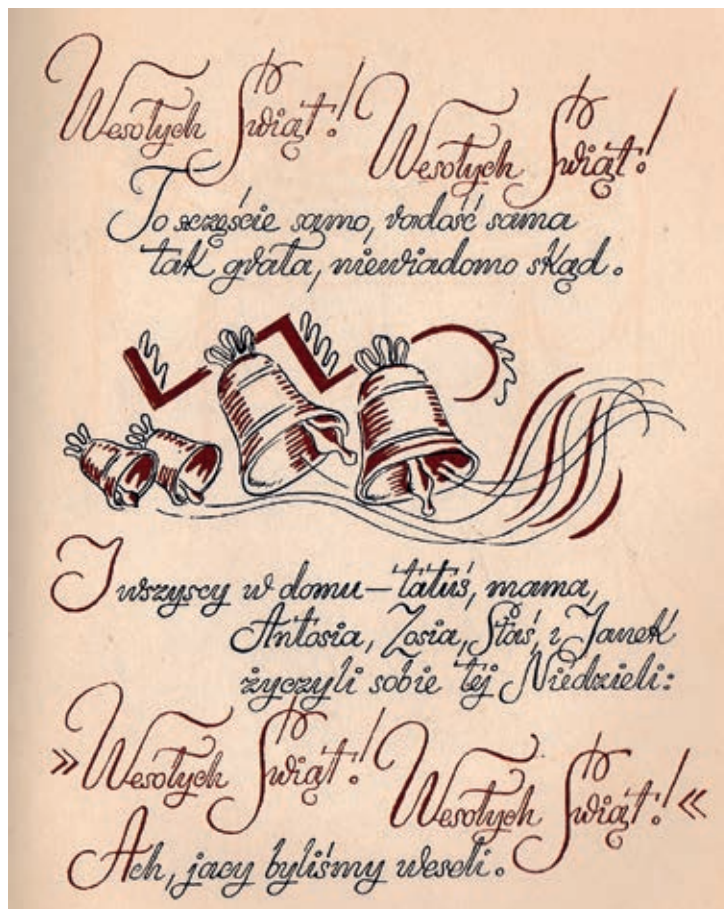 Wesołych Świąt! Wesołych Świąt!
To szczęście samo, radość sama
tak grała, niewiadomo skąd.
I wszyscy w domu — tatuś, mama,
Antosia, Zosia, Staś, i Janek
życzyli sobie tej Niedzieli:
»Wesołych Świąt! Wesołych Świąt!«
Ach, jacy byliśmy weseli.